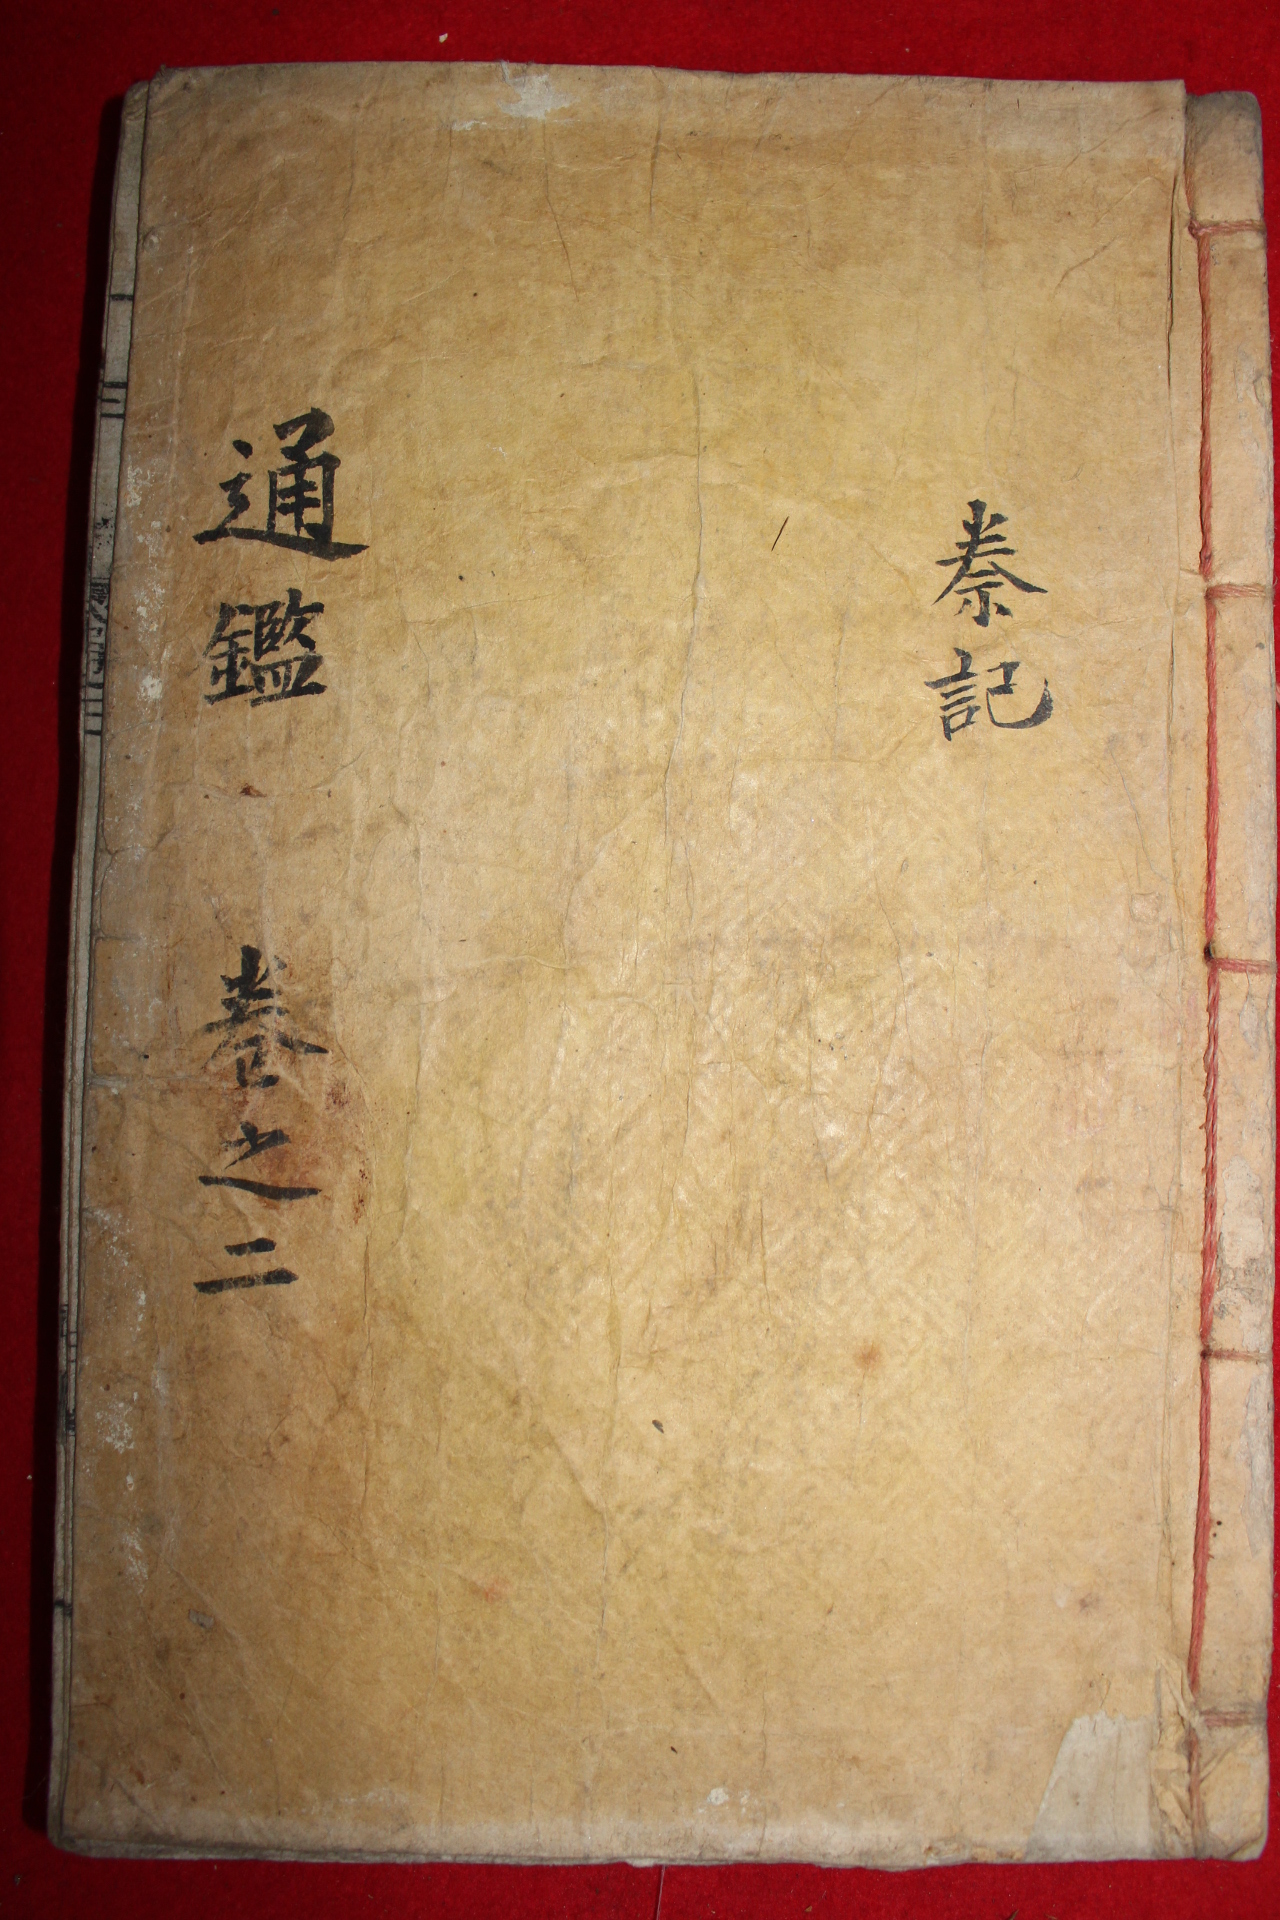 秦記
通鑑 卷之二